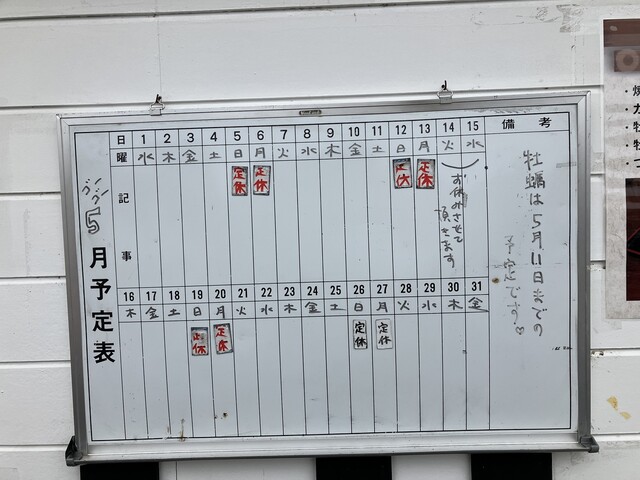 日 1 2 3 4 5 6 7 8 9 10 11 12 13 14 15 備考
曜 水 木 金 土 日 月 火 水 木 金 土 日 月 火 水
記事
定休 定休 定休 定休
お休みさせて
頂きます
牡蠣は5月11日までの
予定です
5月予定表
16 17 18 19 20 21 22 23 24 25 26 27 28 29 30 31
木 金 土 日 月 火 水 木 金 土 日 月 火 水 木 金
定休 定休 定休 定休